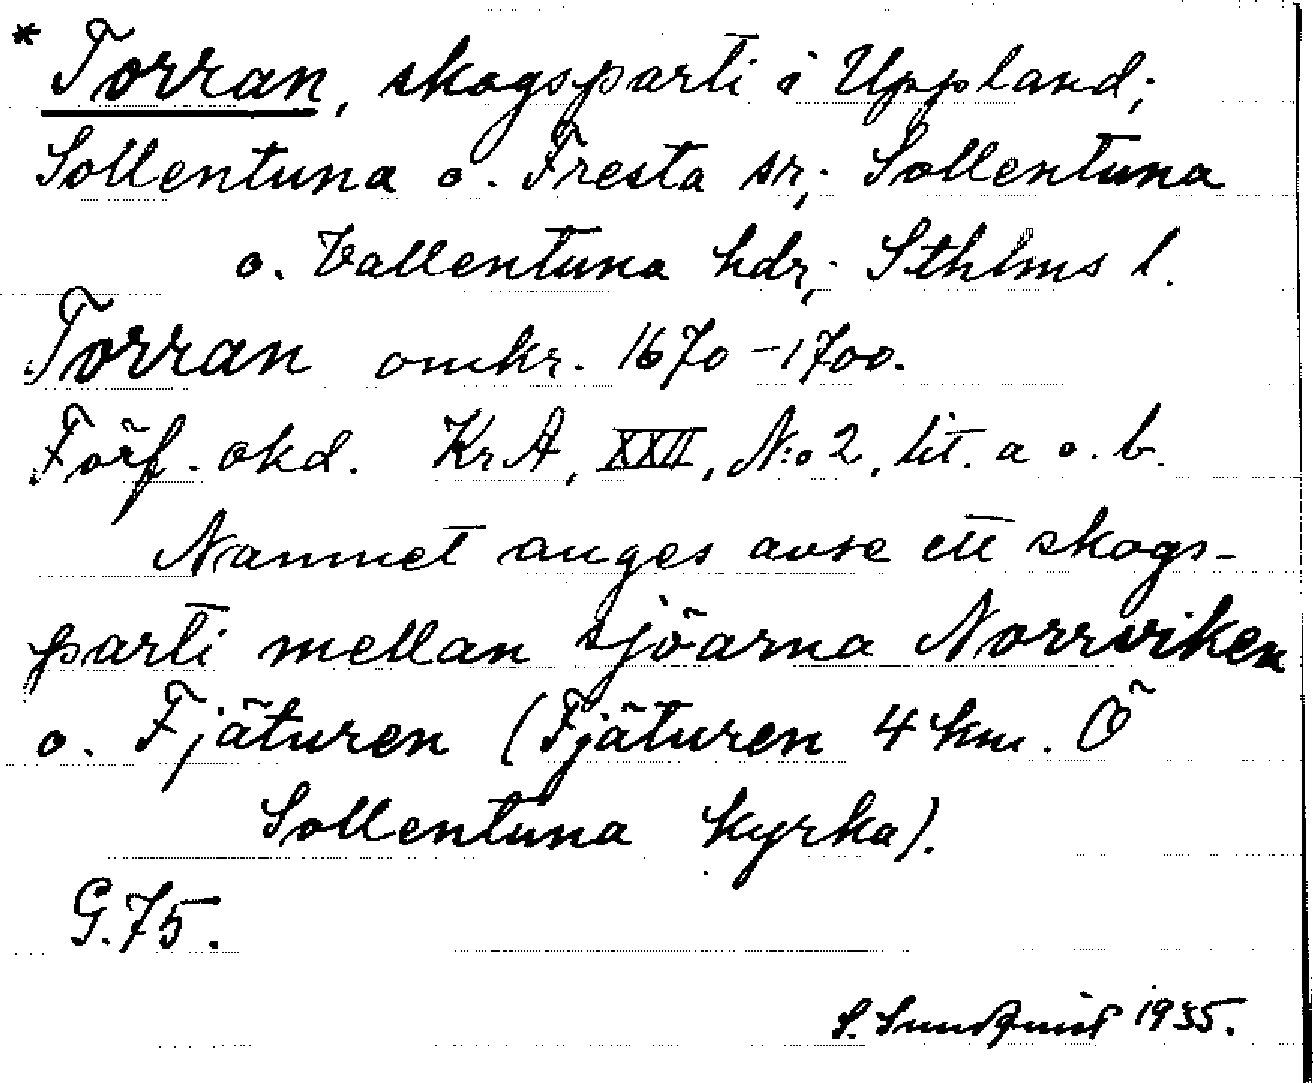 * Torran, skogsparti i Uppland;
Sollentuna o. Fresta snr; Sollentuna
o. Vallentuna hdr; Sthlms l.
Torran omkr. 1670-1700.
Förf. okd. KrA, XXII, N:o 2, lit. a o. b.
Namnet anges avse ett skogs-
parti mellan sjöarna Norrviken
o. Fjäturen (Fjäturen 4 km. Ö
Sollentuna kyrka).
G.75.
S. Sundquist 1935.